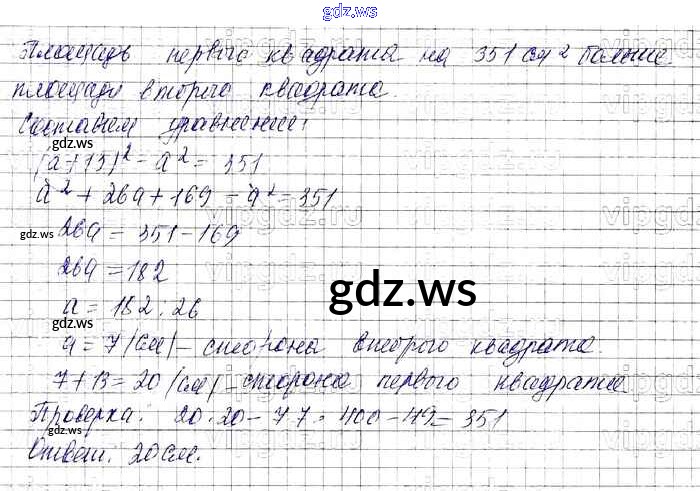 gdz.ws
Площадь первого квадрата на 351 см² больше
площади второго квадрата.
Составим уравнение:
gdz.ws
(а+13)² - а² = 351
а² + 26а + 169 - а² = 351
gdz.ws
26а = 351 - 169
26а = 182
gdz.ws
а = 182 : 26
gdz.ws
а = 7 (см) - сторона второго квадрата.
7 + 13 = 20 (см) - сторона первого квадрата
gdz.ws
Проверка: 20·20 - 7·7 = 400 - 49 = 351
Ответ: 20 см.
gdz.ws
vipgdz.ru